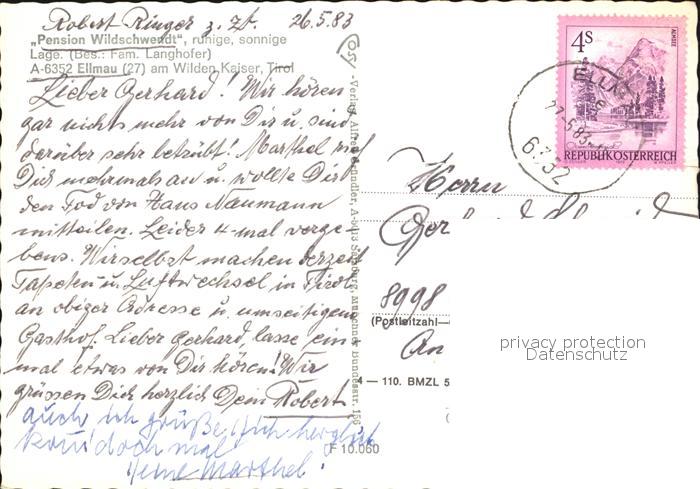 Robert Ringer z. Zt. 26.5.83
„Pension Wildschwendt", ruhige, sonnige
Lage. (Bes.: Fam. Langhofer)
A-6352 Ellmau (27) am Wilden Kaiser, Tirol
Lieber Gerhard! Wir hören
gar nichts mehr von Dir u. sind
darüber sehr betrübt! Marthel rief
Dich mehrmals an u. wollte Dir
den Tod von Hans Naumann
mitteilen. Leider 4-mal verge-
bens. Wir selbst machen derzeit
Tapeten u. Luftwechsel in Tirol
an obiger Adresse u. umseitigem
Gasthof. Lieber Gerhard, lasse ein
mal etwas von Dir hören! Wir
grüssen Dich herzlich Dein Robert
auch ich grüße Dich herzlich
komm doch mal
Deine Marthel!
F 10.060
4S
ALMSEE
REPUBLIK ÖSTERREICH
ELLM
27.5.83
6352
Herrn
Ger
8998
(Postleitzahl—
An
— 110. BMZL 5
privacy protection
Datenschutz